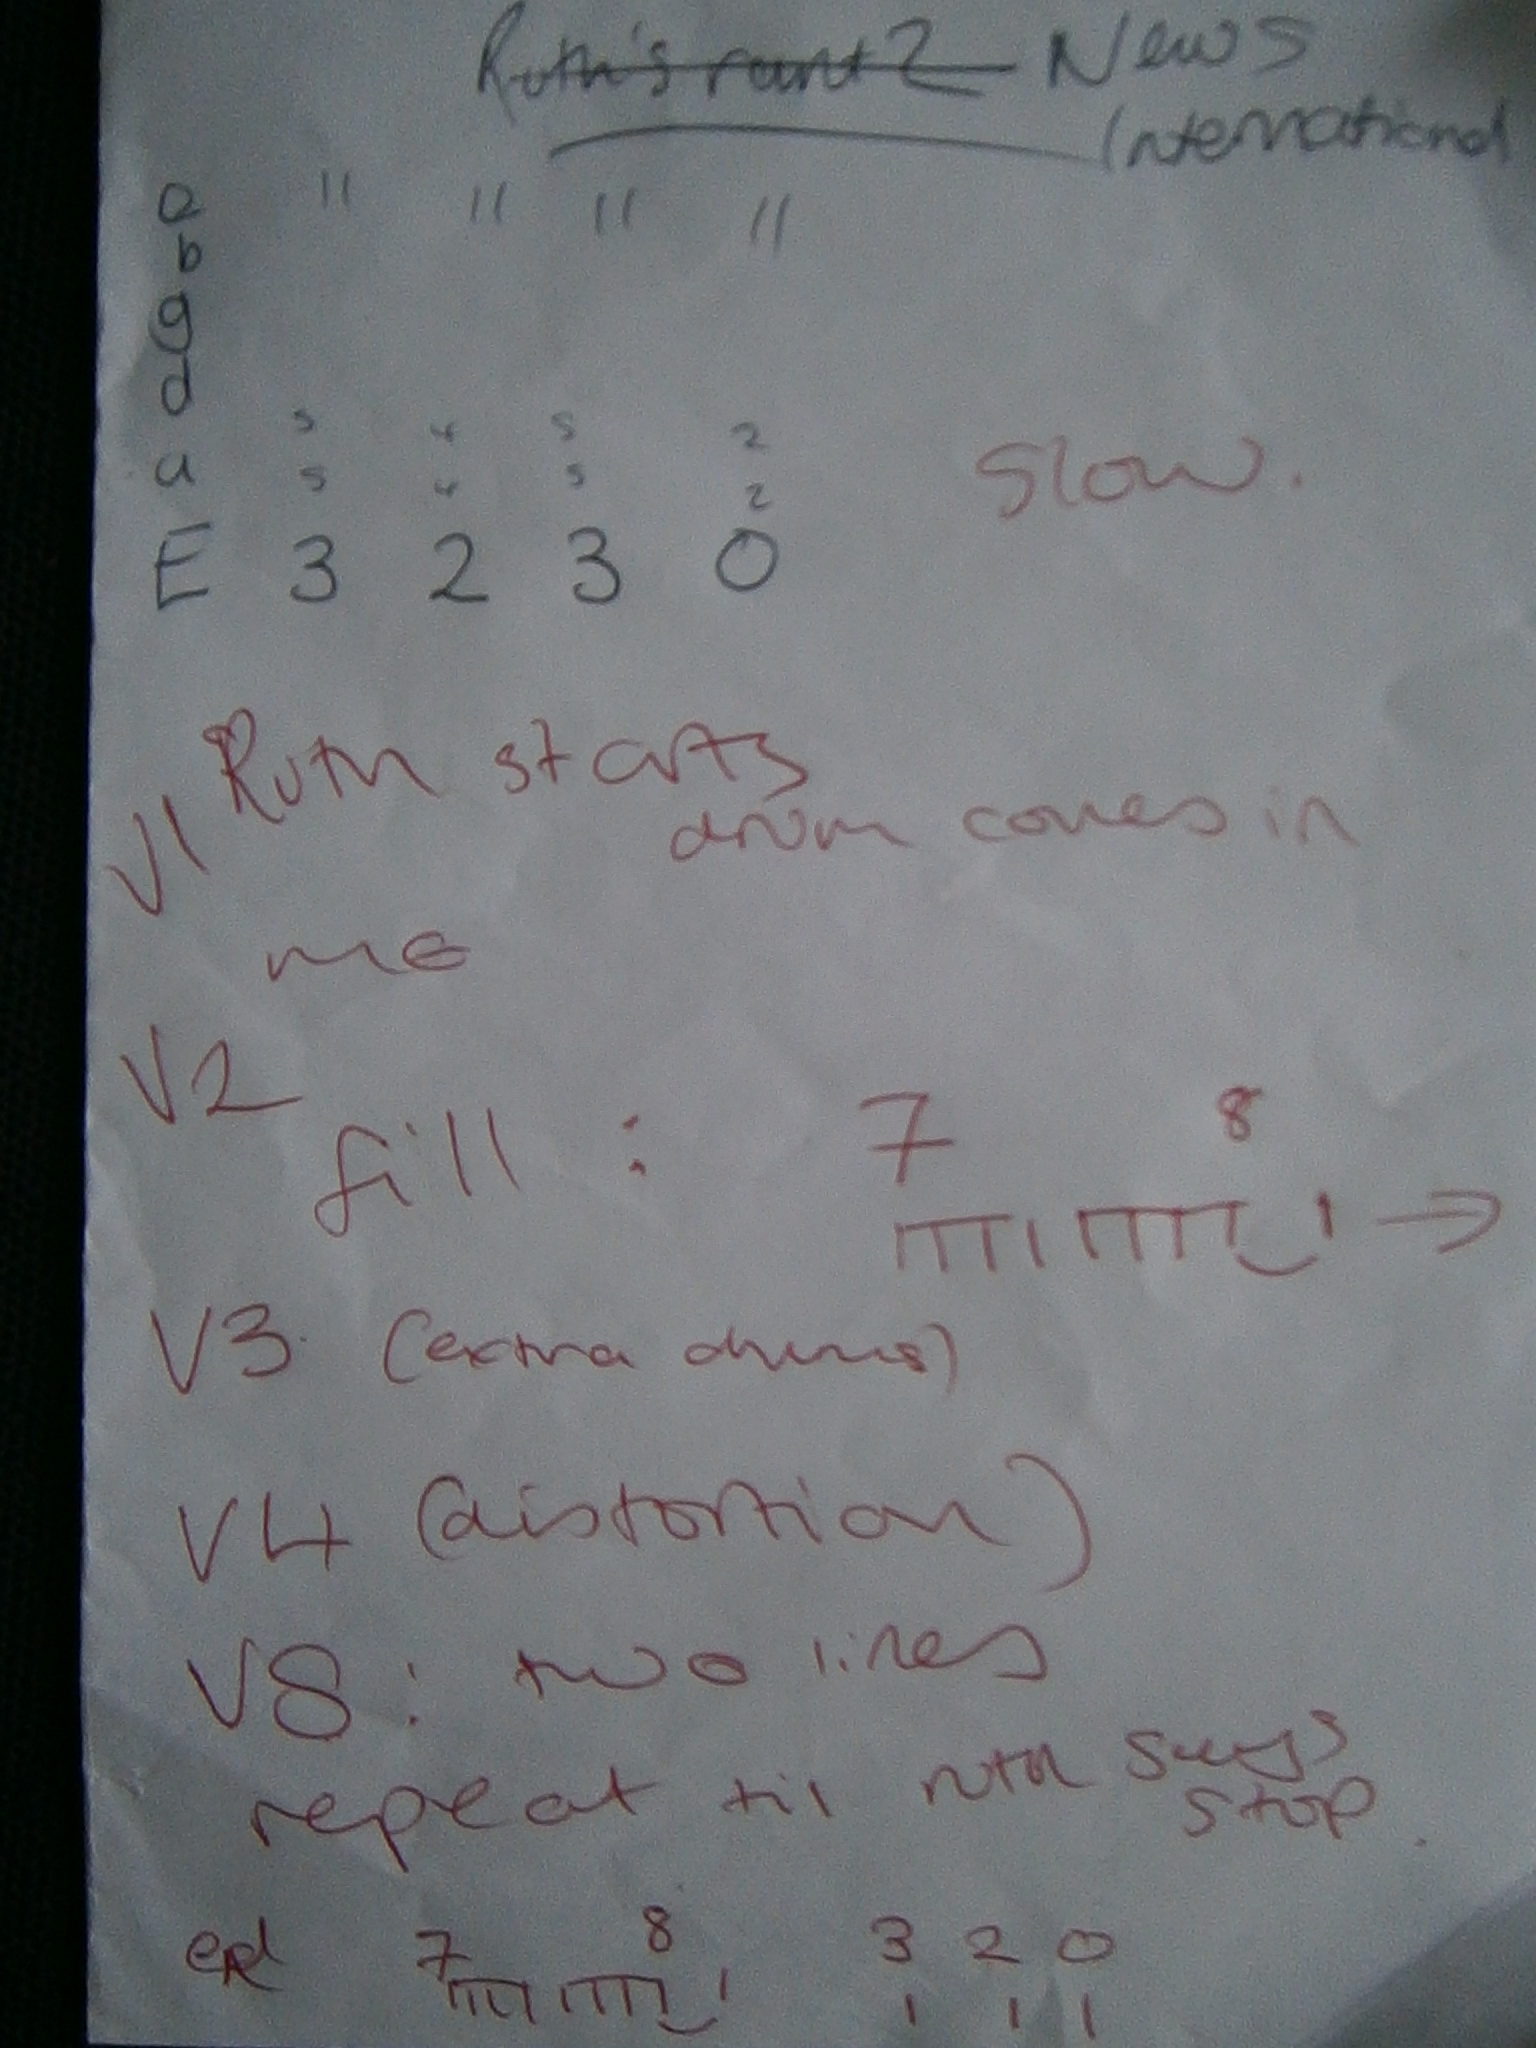 Ruth's rant 2 News
International
e || || || ||
b
g
d 5 4 5 2
a 5 4 5 2
E 3 2 3 0
Slow.
V1 Ruth starts
drum comes in
me
V2
fill : 7 8
V3 (extra drums)
V4 (distortion)
V8 : two lines
repeat til ruth says
stop.
end 7 8 3 2 0